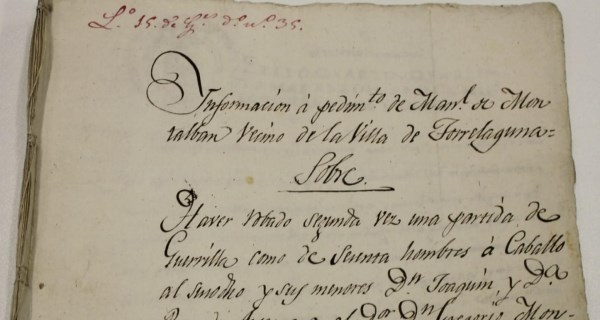 L.º 15. de d.º n.º 35.
Informacion à pedim.to de Man.l de Mon
talban Vecino de la Villa de Torrelaguna=
Sobre.
Haver robado segunda vez una partida de
Guerrilla como de sesenta hombres à Caballo
al susodho y sus menores D.n Joaquin, y D.a
el D.or D.n Gregorio Mon-